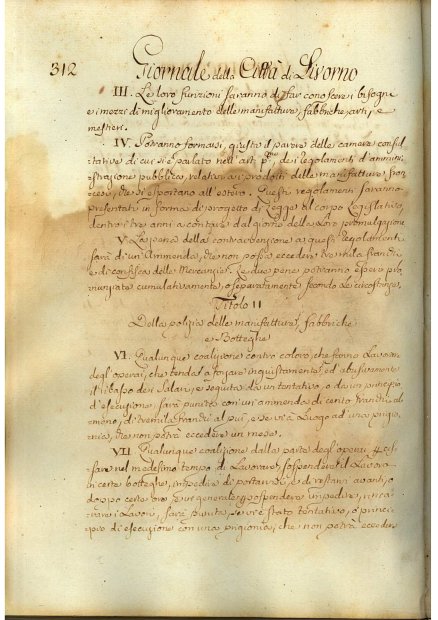 312 Giornale della Città di Livorno
III. Le loro funzioni saranno di far conoscere i bisogni
e i mezzi di miglioramento delle manifatture, fabbriche, arti, e
mestieri.
IV. Potranno formarsi, il parere delle camere consul
tative di cui si è parlato nell'art. dei regolamenti d'ammini
strazione pubblica, relativi ai prodotti delle manifatture fran
cesi, che si esportano all'estero. Questi regolamenti saranno
presentati in forma di progetto di Legge al Corpo Legislativo,
dentro i tre anni a contare dal giorno della loro promulgazione
V. La pena della contravvenzione a questi regolamenti
sarà di un'Ammenda, che non possa eccedere tre mila franchi
e di confisca delle Mercanzie. Le due pene potranno essere pro
nunziate cumulativamente o separatamente secondo le circostanze.
Titolo II
Della polizia delle manifatture, fabbriche
e Botteghe
VI. Qualunque coalizione contro coloro, che fanno Lavorare
degli operai, che tenda a forzare ingiustamente, ed abusivamente
il ribasso dei Salari, e seguita da un tentativo, o da un principio
d'esecuzione, sarà punita con un'ammenda di cento franchi al
meno, di tremila franchi al più, e se vi è Luogo ad una prigio
nia, che non potrà eccedere un mese.
VII. Qualunque coalizione dalla parte degli operai ces
sare nel medesimo tempo di Lavorare, sospendere il Lavoro
in certe botteghe, impedire di portarvisi, e di restarvi avanti, o
doppo certe ore, e in generale sospendere, impedire, rinca
rare i Lavori, sarà punita, se vi è stato tentativo, o princi
pio di esecuzione con una prigionia, che non potrà eccedere